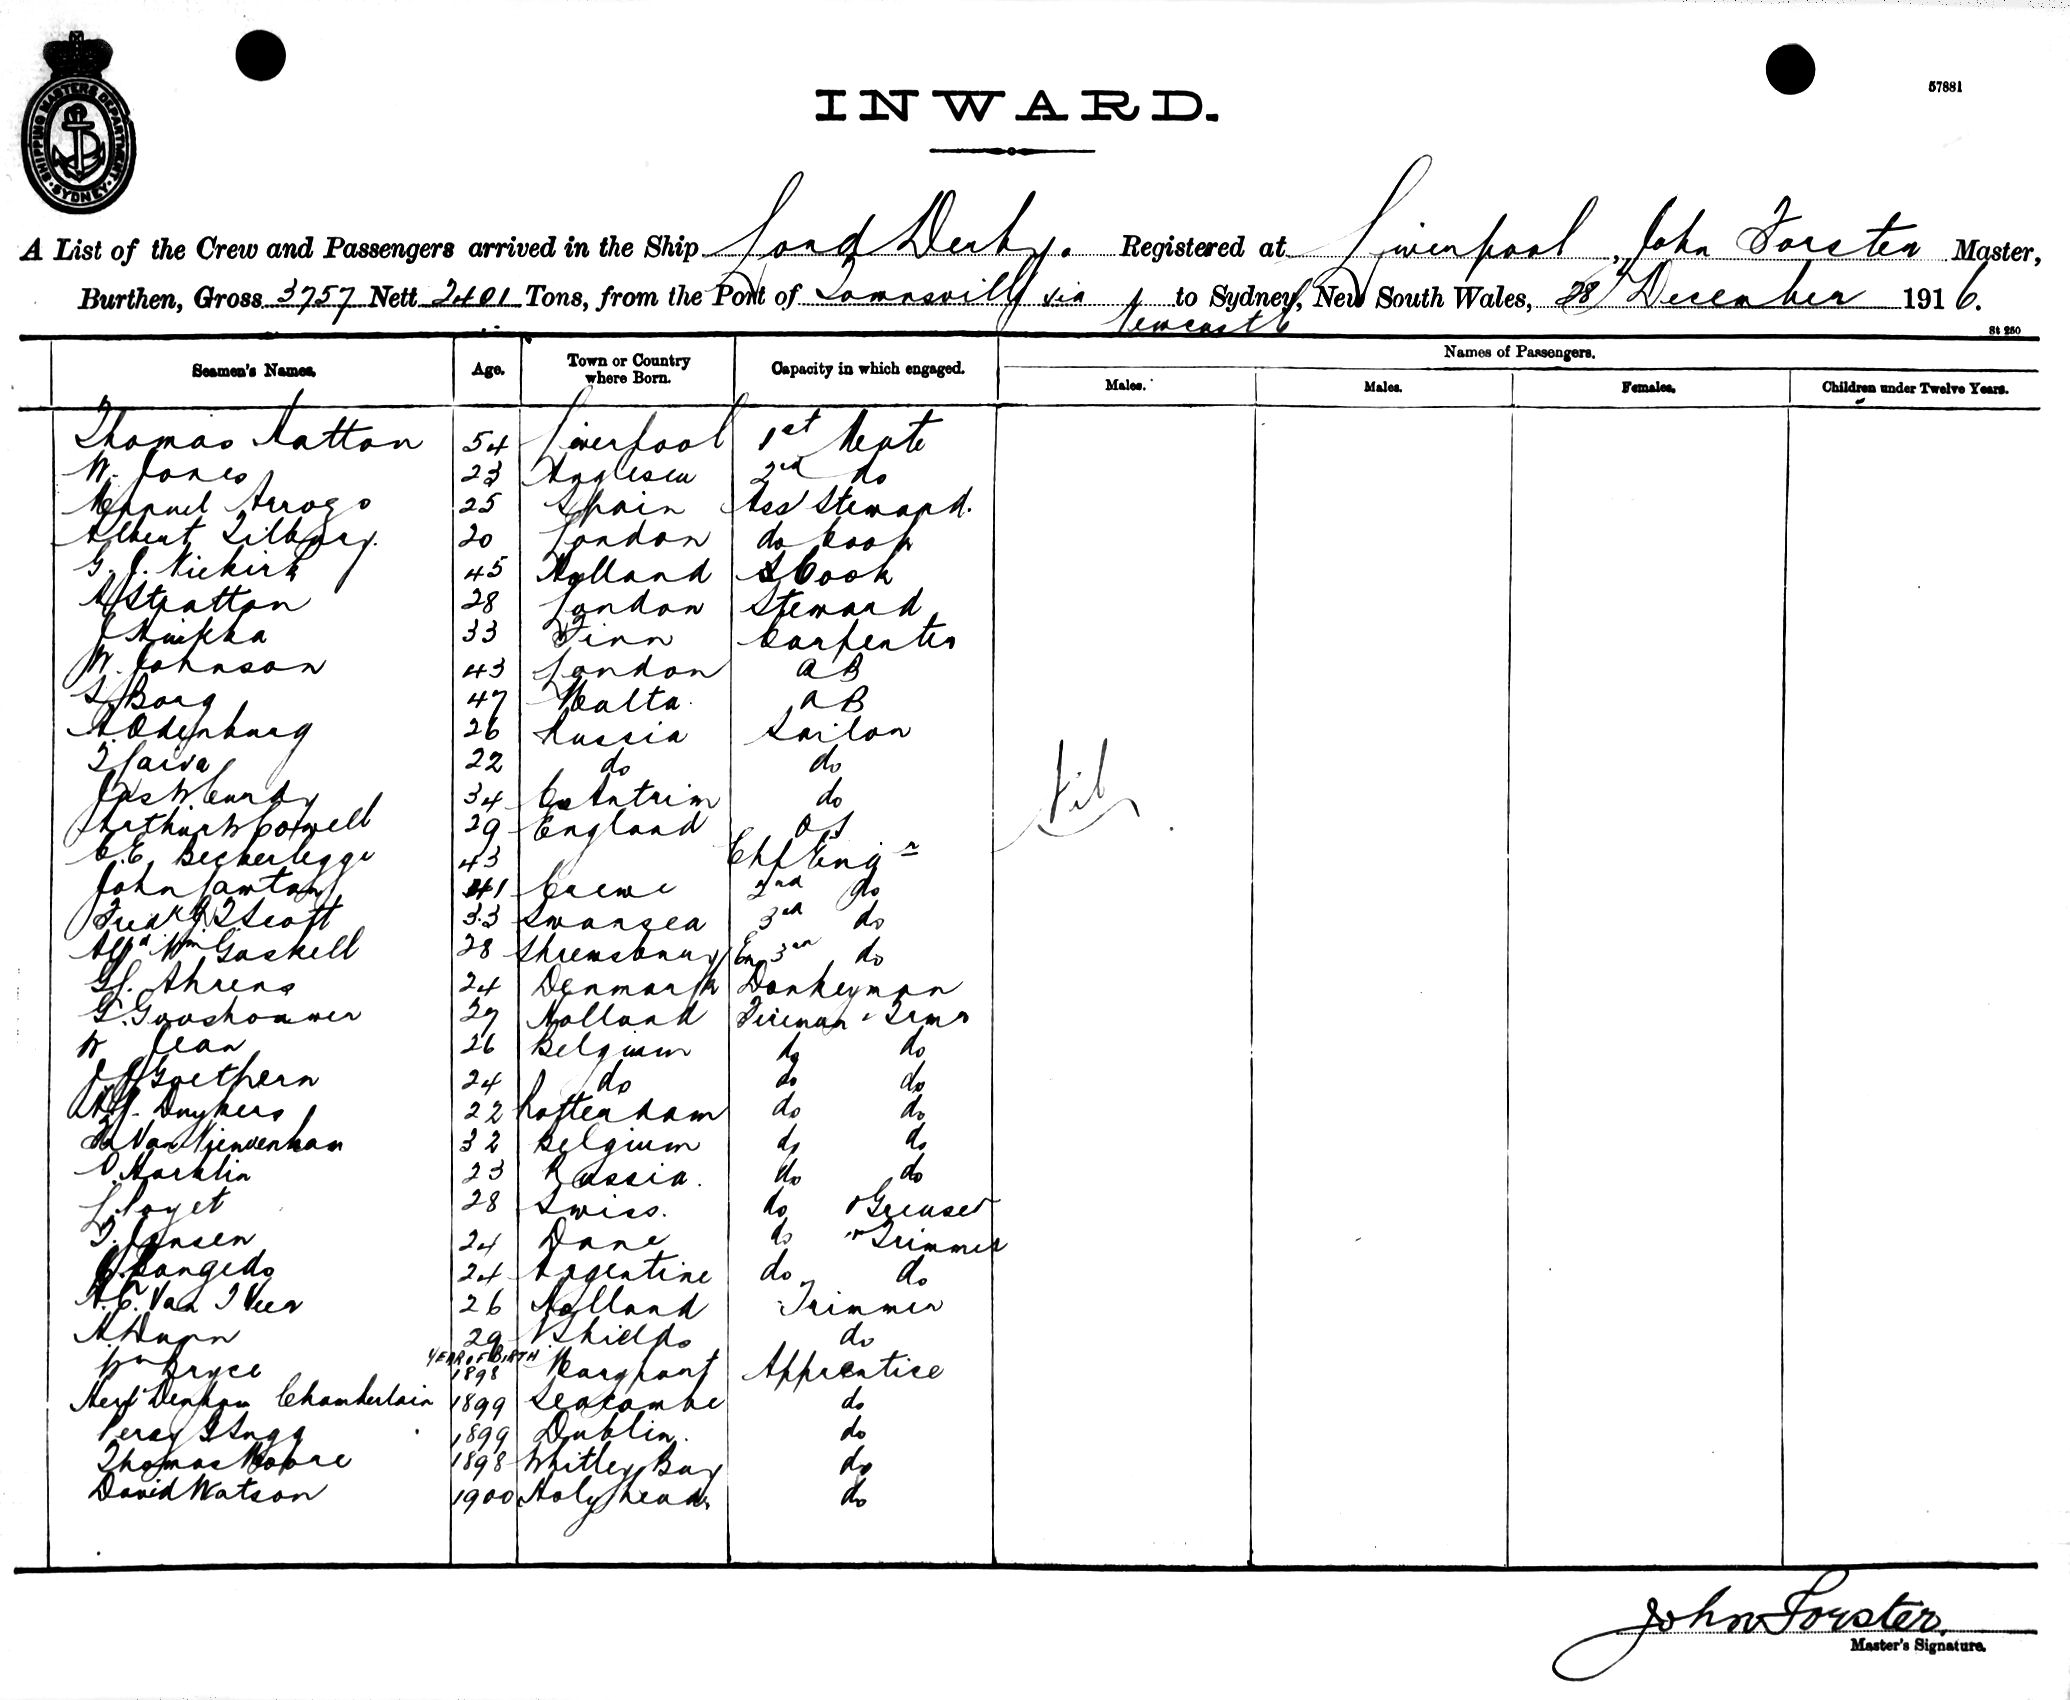 SHIPPING MASTERS DEPARTMENT
SYDNEY
57881
INWARD.
A List of the Crew and Passengers arrived in the Ship Lord Derby. Registered at Liverpool, John Forster Master,
Burthen, Gross 3757 Nett 2401 Tons, from the Port of Townsville via Newcastle to Sydney, New South Wales, 28 December 1916.
St 250
Seamen's Names. Age. Town or Country where Born. Capacity in which engaged. Names of Passengers.
Males. Males. Females. Children under Twelve Years.
Thomas Hatton 54 Liverpool 1st Mate
W. Jones 23 Anglesea 2nd do
Manuel Arrogo 25 Spain Ass Steward.
Albert Tilbury. 20 London do Cook
G. J. Niekirk 45 Holland S Cook
A Stratton 28 London Steward
J 33 Finn Carpenter
W. Johnson 43 London AB
S Borg 47 Malta. AB
A. Odenburg 26 Russia Sailor
T Saiva 22 do do
Jas W Curdy 34 Co Antrim do
Arthur W Coxwell 29 England OS
C. E. Beckerlegge 43 Chf Engr
John Lawton 41 Crewe 2nd do
Fredk J T Scott 33 Swansea 3rd do
Alfd Wm Gaskell 28 Shrewsbury Ex 3rd do
G. Ahrens 24 Denmark Donkeyman
G. 27 Holland Fireman & Trmr
W Jean 26 Belgium do do
J J Goethern 24 do do do
Duykers 22 Rotterdam do do
Van 32 Belgium do do
O. Harklin 23 Russia. do do
L. Poget 28 Swiss. do & Greaser
T. Jensen 24 Dane do & Trimmer
J. Cangedo 24 Argentine do do
H. C. Van T Veer 26 Holland Trimmer
A. Dunn 29 N Shields do
YEAR OF BIRTH
Wm Bryce 1898 Maryport Apprentice
Herbt Denham Chamberlain 1899 Seacombe do
Percy G Sugg 1899 Dublin. do
Thomas Moore 1898 Whitley Bay do
David Watson 1900 Holyhead do
Nil
John Forster.
Master's Signature.